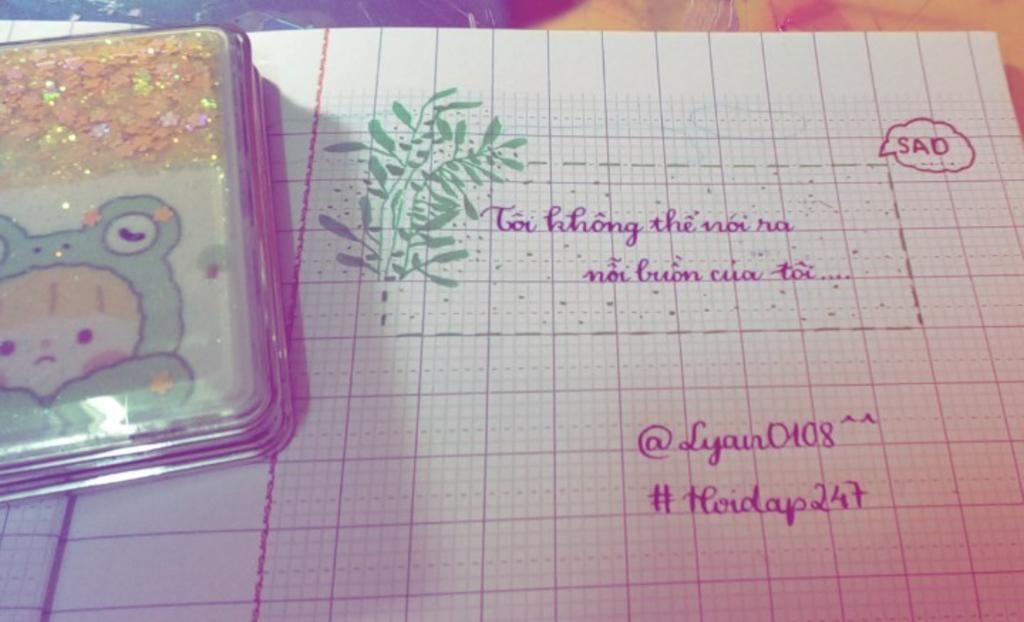 SAD
Tôi không thể nói ra
nỗi buồn của tôi....
@Lyaun0108^^
#Hoidap247